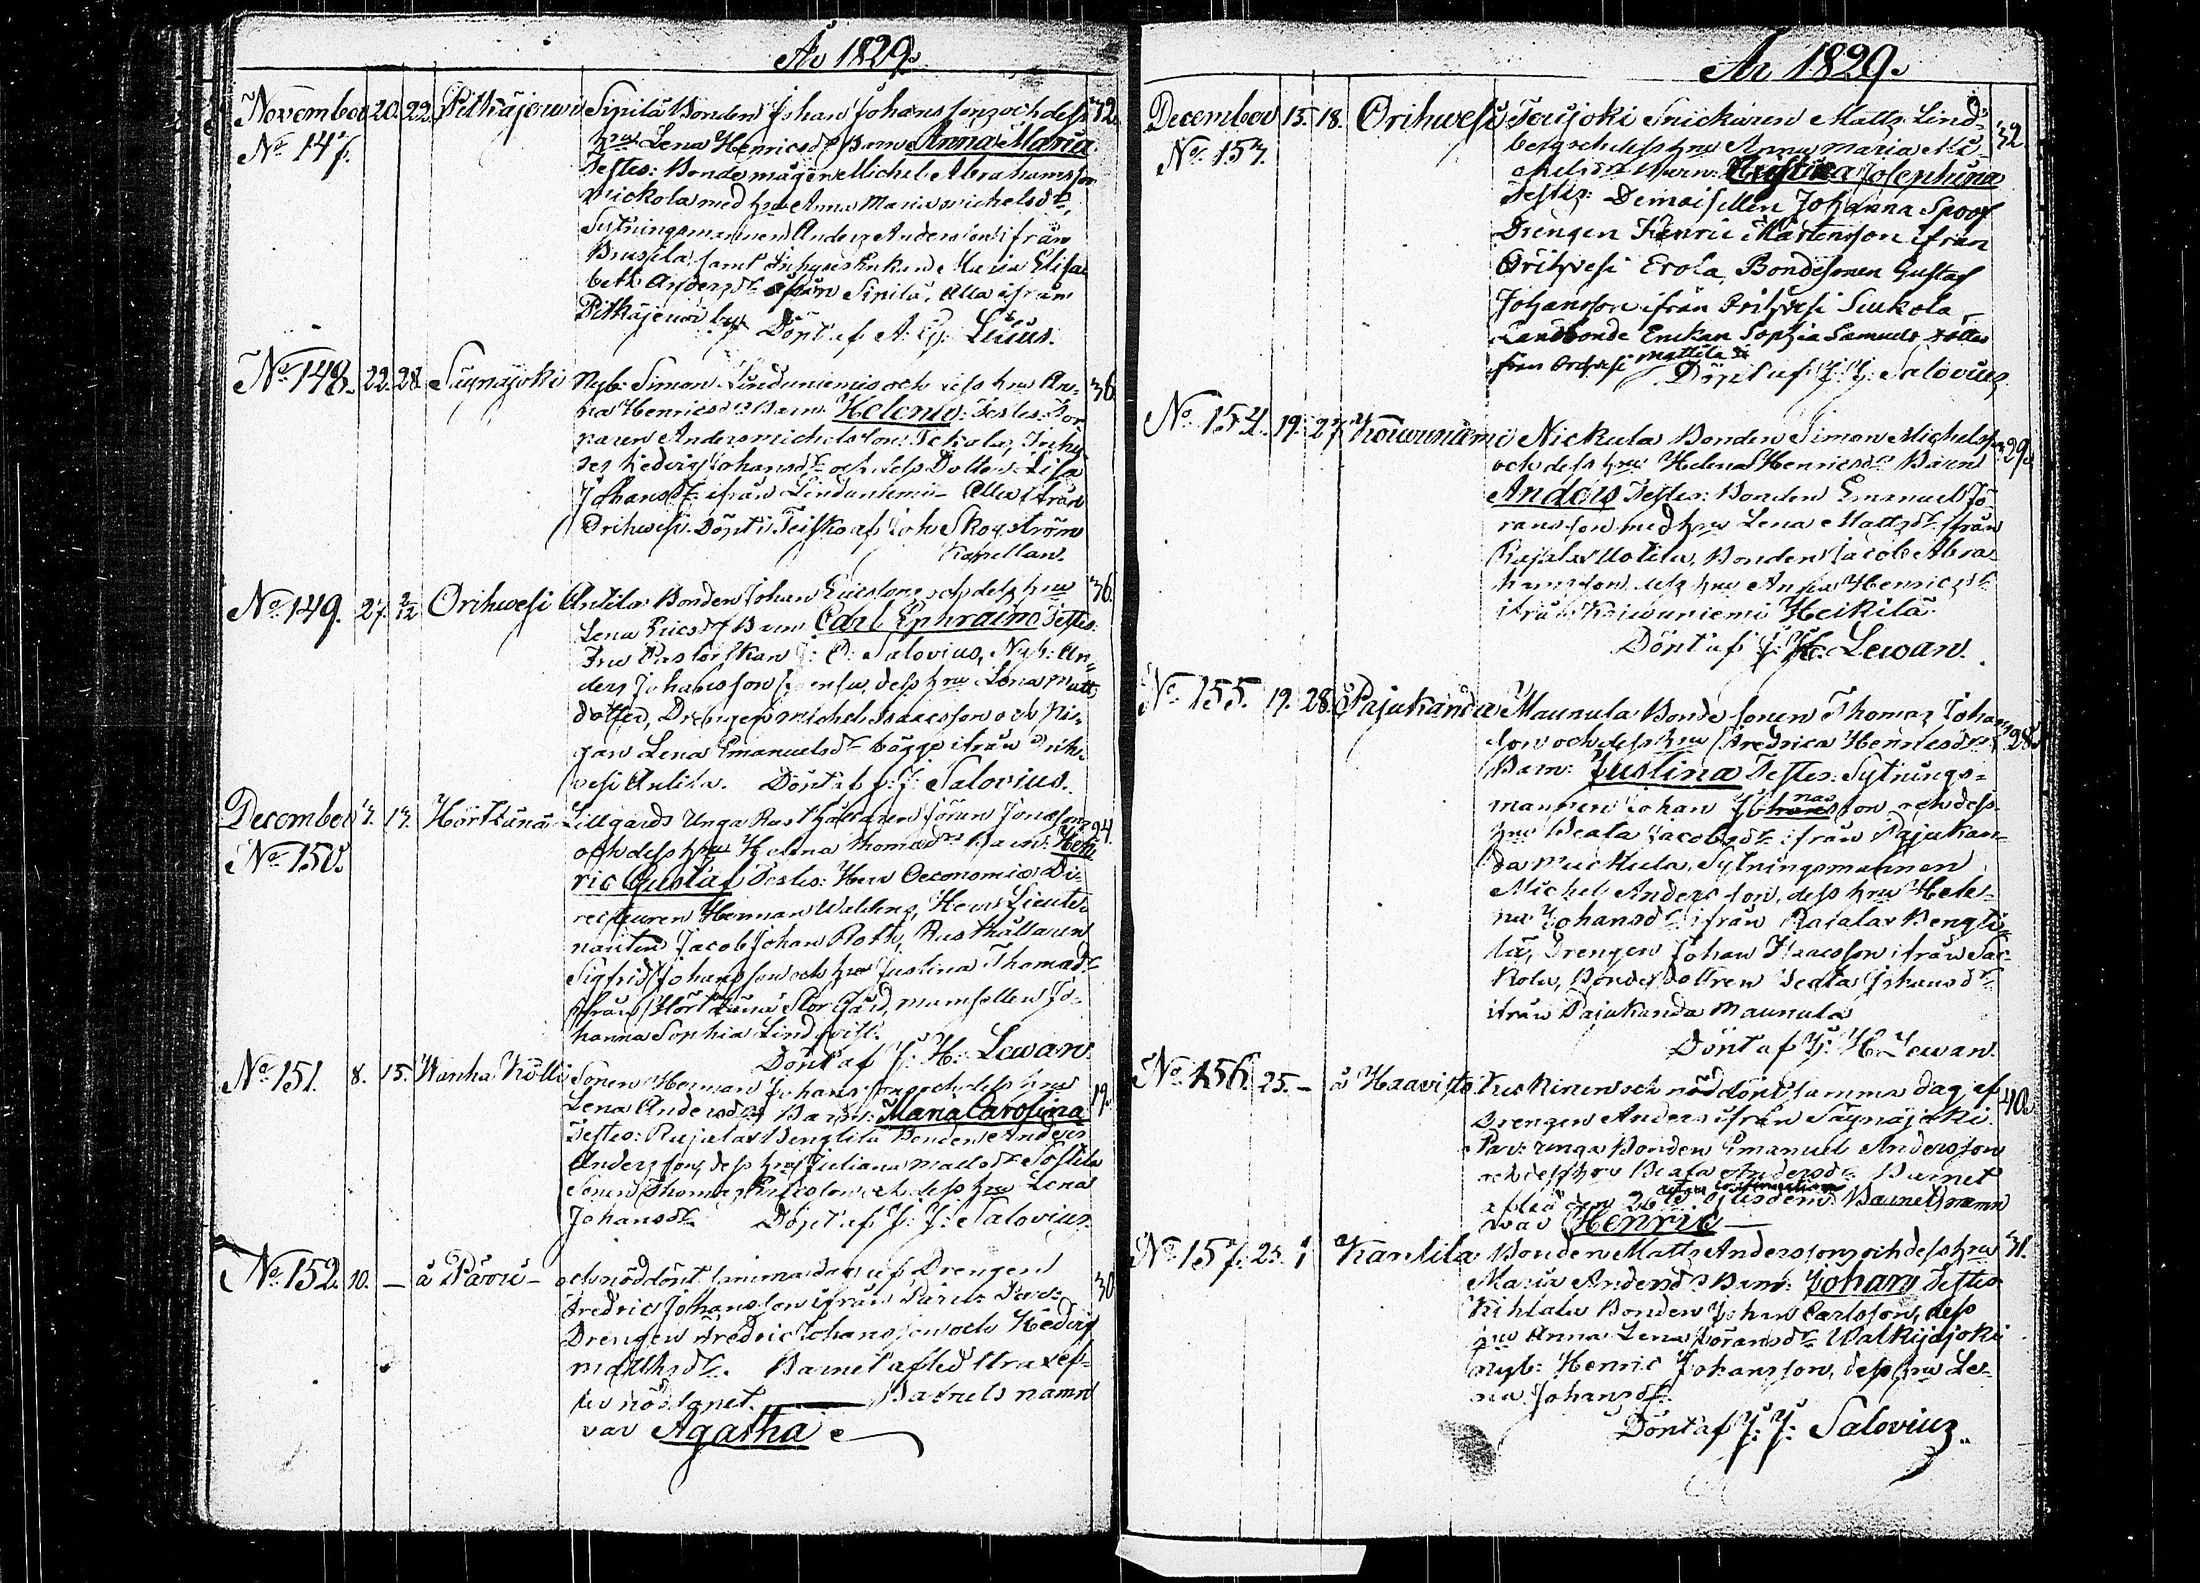 År 1829.
November 20. 22. Pitkäjerwi Sipilä Bonden Johan Johansson och dess 32.
No 147. hru Lena Henricsdr Barn Anna Maria
Testes: Bonde mågen Michel Abrahamsson
Nickola med hru Anna Maria Michelsdr,
Sytningsmannen Anders Andersson ifrån
Brusila, samt Inhyses Enkan Maria Elisa
beth Andersdr ifrån Sipilä, Alla ifrån
Pitkäjerwi by Döpt af A: Lilius.
No 148. 22. 28. Säynäjoki Nyb: Simon Linduniemi och dess hru An- 36.
na Henricsdr Barn Helena: Testes: Tor
paren Anders Michelsson Tokola, Inhy
ses Hedvig Johansdr och dess Dotter Lisa
Johansdr ifrån Linduniemi - Alla ifrån
Orihwesi. Döpt i Teisko af Joh Skogström
Kapellan.
No 149. 27. 2/12 Orihwesi Antila Bonden Johan Ericsson och dess hru 36.
Lena Ericsdr Barn Carl Ephraim Testes
Fru Pastorskan J: O: Salovius, Nyb: An-
ders Johansson dess hru Lena Matts
dotter, Drengen Michel Isaacsson och Pi-
gan Lena Emanuelsdr bägge ifrån Orih-
vesi Antila. Döpt af J: J: Salovius.
December 7. 13. Hörtsänä Lillgårds Unga Rusthållaren Jöran Jönsson 24.
No 150. och dess hru Helena Thomædr Barn: Hen
ric Gustaf Testes: Herr Oeconomie Di-
recteuren Herman Walleng, Herr Lieute-
nanten Jacob Johan Roth, Rusthållaren
Sigfrid Johansson och hru Justina Thomædr
ifrån Hörtsänä Storgård, mamsellen Jo-
hanna Sophia Lindqvist.
Döpt af J: H: Lewan
No 151. 8. 15. Wanha Kölli Sonen Herman Johansson och dess hru 19.
Lena Andersdr Barn: Maria Carolina
Testes: Rajalax Bengtila Bonden Anders
Andersson, dess hru Juliana Mattsdr Tostila
Sonen Thomas Ericsson och dess hru Lena
Johansdr Döpt af J: J: Salovius
No 152. 10. - å Päru - och nöddöpt samma dag af Drengen 30
Fredric Johansson ifrån Päru: Par:
Drengen Fredric Johansson och Hedvig
Matthsdr. Barnet afled straxef-
ter nöddopet. Barnets namn
var Agatha
År 1829.
December 15. 18. Orihwesi Teujoki Snickaren Matts Lind- 32
No 153. berg och dess hru Anna Maria Mi-
chelsdr Barn: Christina Josephina
Testes: Demoisellen Johanna Spoof
Drengen Henric Mårtensson ifrån
Orihvesi Erola, Bondesonen Gustaf
Johansson ifrån Orihvesi Seukola
Landbonde Enkan Sophia Samuels dotter
från Orihvesi Mattila
Döpt af J: J: Salovius
No 154. 19. 27. Koiwuniemi Nickula Bonden Simon Michelsson 29.
och dess hru Helena Henricsdr Barn
Anders Testes: Bonden Emanuel Jö
ransson med hru Lena Mattsdr ifrån
Rajalax Uotila, Bonden Jacob Abra
hamsson dess hru Anna Henricsdr
ifrån Koiwuniemi Heikilä
Döpt af J: H: Lewan.
No 155. 19. 28. Pajukanda Maunula Bonde sonen Thomas Johans
son och dess hru Fredrica Henricsdr 28.
Barn: Justina Testes: Sytnings-
mannen Johan Jonasson och dess
hru Beata Jacobsdr ifrån Pajukan-
da Nuckula, Sytningsmannen
Michel Andersson, dess hru Hele-
na Johansdr ifrån Rajalax Bengti-
lä, Drengen Johan Isaacsson ifrån Sac-
kola, Bonde dottren Beata Johansdr
ifrån Pajukanda Maunula
Döpt af J: H. Lewan.
No 156. 25. - å Haavisto Kuckinen och nöddöpt samma dag af 40.
Drengen Anders ifrån Säynäjoki.
Par: unga Bonden Emanuel Andersson
och dess hru Beata Andersdr Barnet
afled den 26te ejusdem. Barnets namn
war Henric
No 157. 25. Kantila Bonden Matts Andersson och dess hru 31.
Maria Andersdr Barn: Johan Testes
Kihlala Bonden Johan Carlsson, dess
hru Anna Lena Göransdr Walkijajoki
Nyb: Henric Johansson, dess hru Le-
na Johansdr.
Döpt af J: J: Salovius